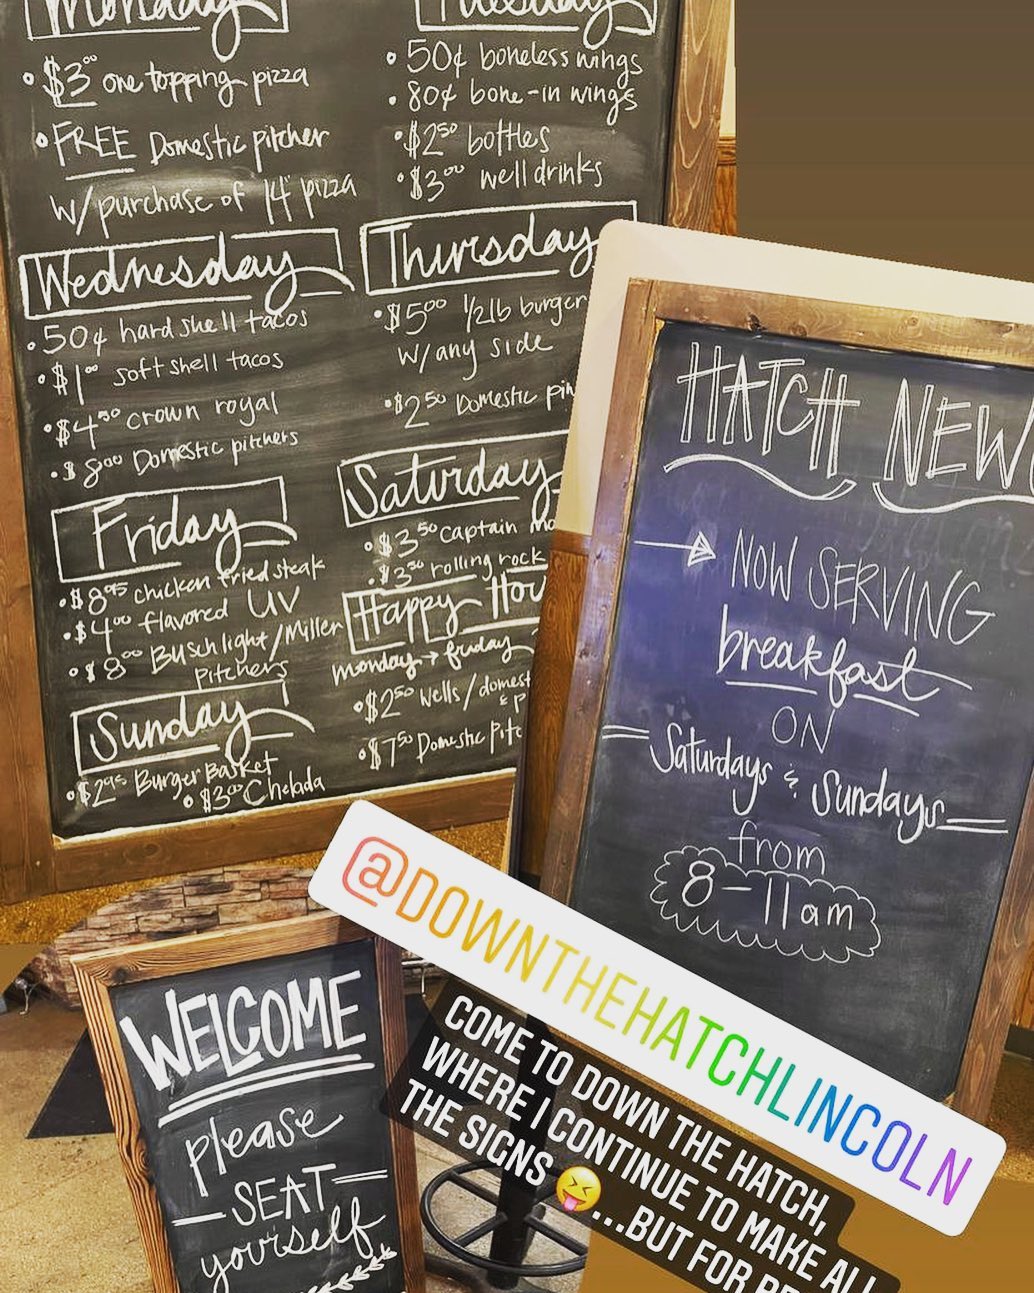 Monday
• $3.00 one topping pizza
• FREE Domestic pitcher
w/purchase of 14" pizza
Tuesday
• 50¢ boneless wings
• 80¢ bone-in wings
• $2.50 bottles
• $3.00 well drinks
Wednesday
• 50¢ hard shell tacos
• $1.00 soft shell tacos
• $4.50 crown royal
• $8.00 Domestic pitchers
Thursday
• $5.00 1/2lb burger
w/any side
• $2.50 Domestic pin
Friday
• $8.95 chicken fried steak
• $4.00 flavored UV
• $8.00 Busch light/Miller
pitchers
Saturday
• $3.50 Captain mo
• $3.50 rolling rock
Happy Hou
monday → friday
• $2.50 wells/domest
& p
• $7.50 Domestic pitc
Sunday
• $2.95 Burger Basket
• $3.00 Chelada
HATCH NEW
→ NOW SERVING
breakfast
ON
Saturdays & Sundays
from
8-11am
WELCOME
please
SEAT
yourself
@DOWNTHEHATCHLINCOLN
COME TO DOWN THE HATCH,
WHERE I CONTINUE TO MAKE ALL
THE SIGNS 😝...BUT FOR